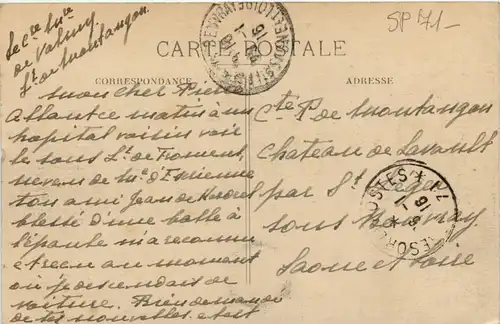 Le Cte Hre
de Valmy
Lt de Montangon
SP 71
CARTE POSTALE
CORRESPONDANCE
ADRESSE
Mon cher Pierre
Allant ce matin à un
hopital voisin voir
le sous Lt de Froment,
neveu de Me d'Esrienne
ton ami Jean de
blessé d'une balle à
l'épaule m'a reconnu
et reçu au moment
où je descendais de
voiture. Rien de
de tes nouvelles et est
Cte P. de Montangon
Chateau de Lavault
par St Léger
sous Beuvray
Saone et Loire
TRESOR ET POSTES